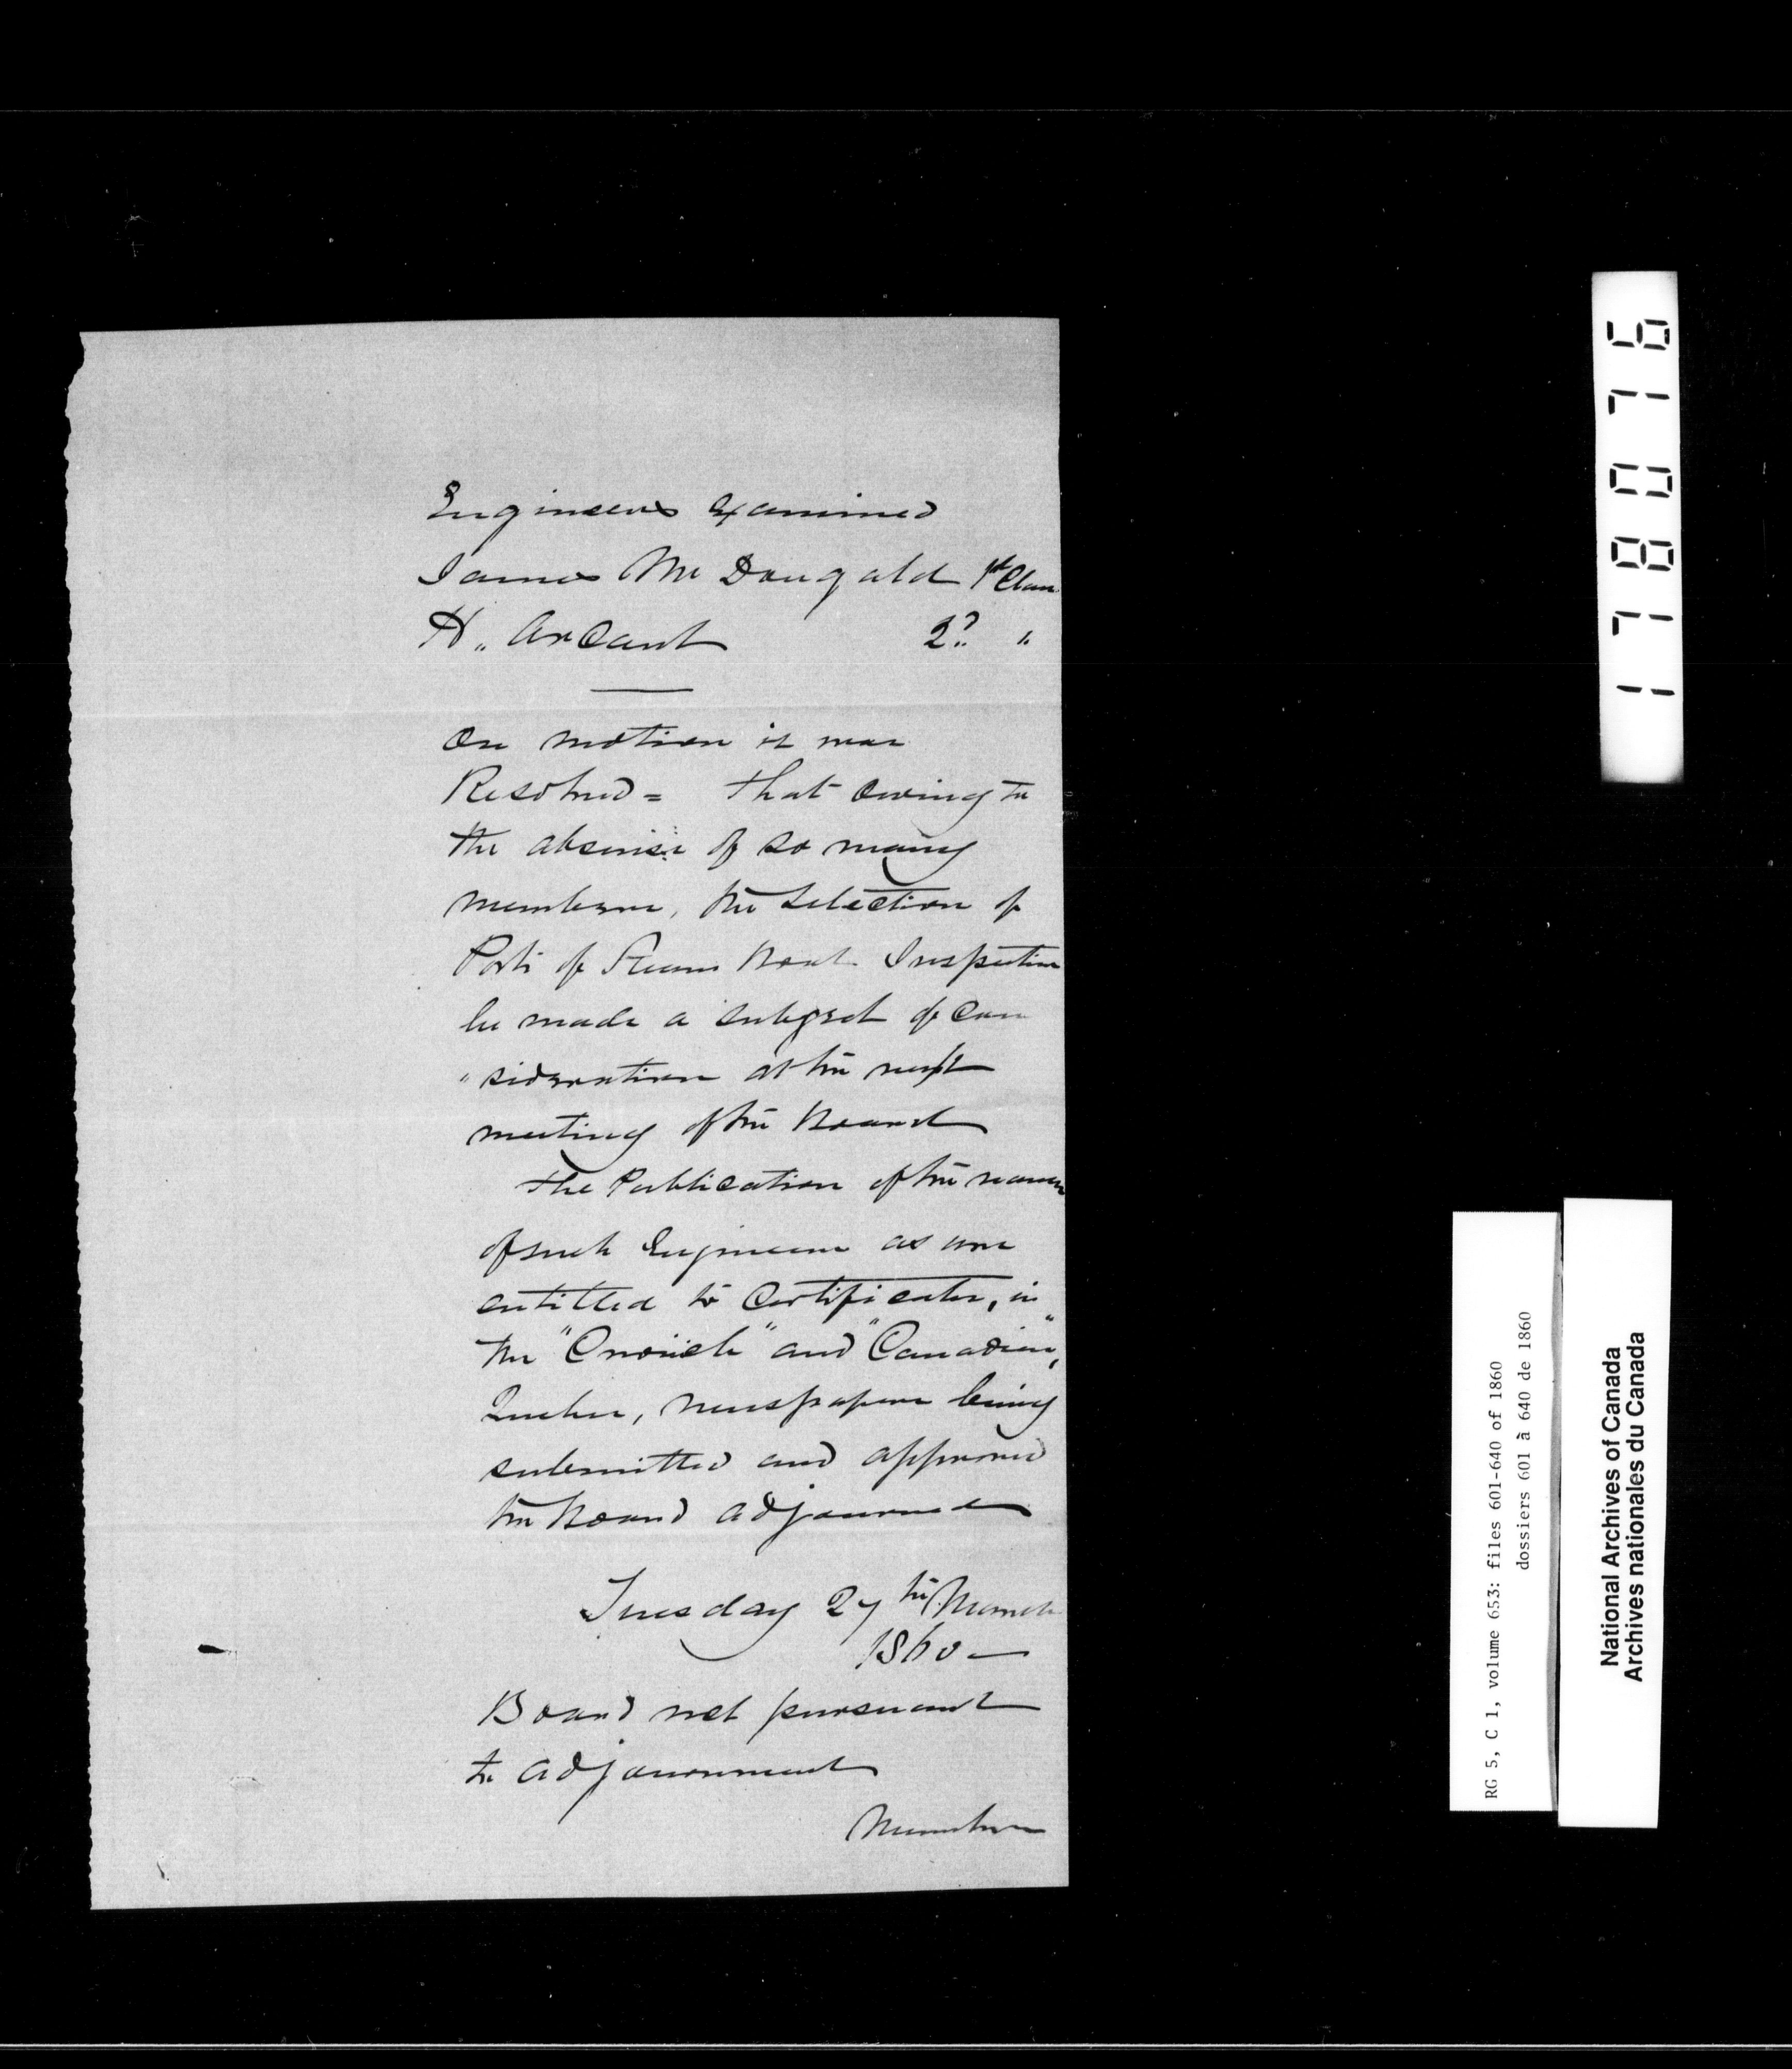 Engineers Examined
James McDougald 1st Class
H. Arcant 2d "
On motion it was
Resolved = that owing to
the absence of so many
members, the selection of
Ports of Steam Boat Inspection
be made a subject of con
" sideration at the next
meeting of the Board
The Publication of the names
of such Engineers as are
entitled to Certificates, in
the "Chronicle" and "Canadien",
Quebec, newspapers being
submitted and approved
the Board adjourned
Tuesday 27th March
1860 —
Board met pursuant
to adjournment
Members
178076
RG 5, C 1, volume 653: files 601-640 of 1860
dossiers 601 à 640 de 1860
National Archives of Canada
Archives nationales du Canada